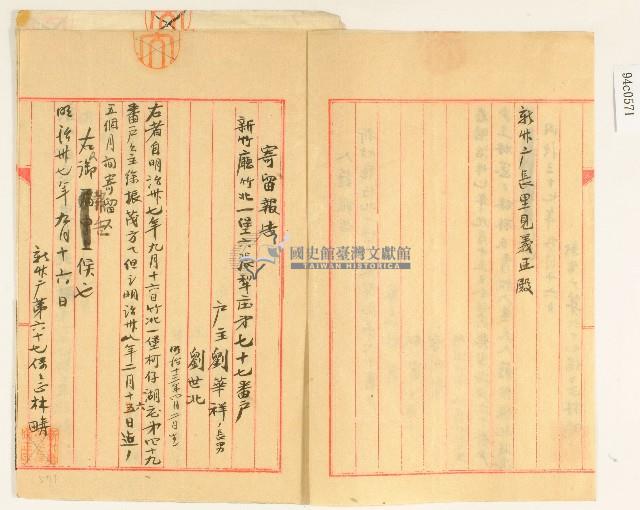 寄留報告
新竹廳竹北一堡六張犁庄第七十七番戶
戶主劉華祥、長男
劉世北
明治十三年四月二日生
右者自明治卅七年九月十六日竹北一堡柯仔湖庄第四十九
番戶戶主徐振茂方へ但シ明治卅八年二月十五日迄ノ
五個月間寄留
右御候也
明治卅七年九月十六日
新竹廳第六十七保保正林疇
新竹廳長里見義正殿
國史館臺灣文獻館
TAIWAN HISTORICA
94c0571